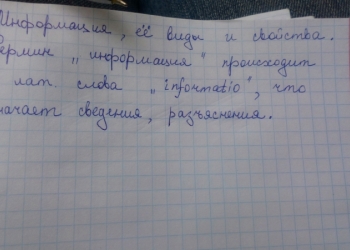 Информация, её виды и свойства.
термин „информация" происходит
лат. слова „informatio", что
начает сведения, разъяснения.